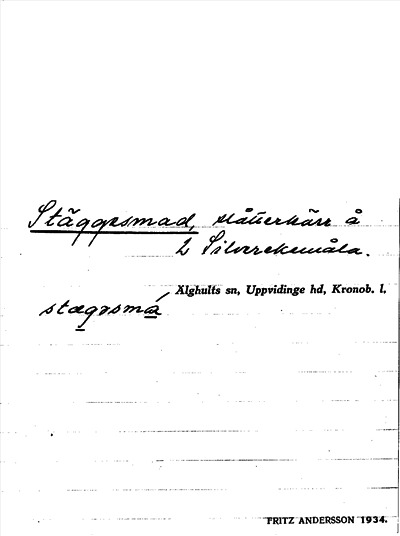 Stäggesmad, slåtterkärr å
2 Silverekemåla.
Älghults sn, Uppvidinge hd, Kronob. l.
stægəsmá
FRITZ ANDERSSON 1934.